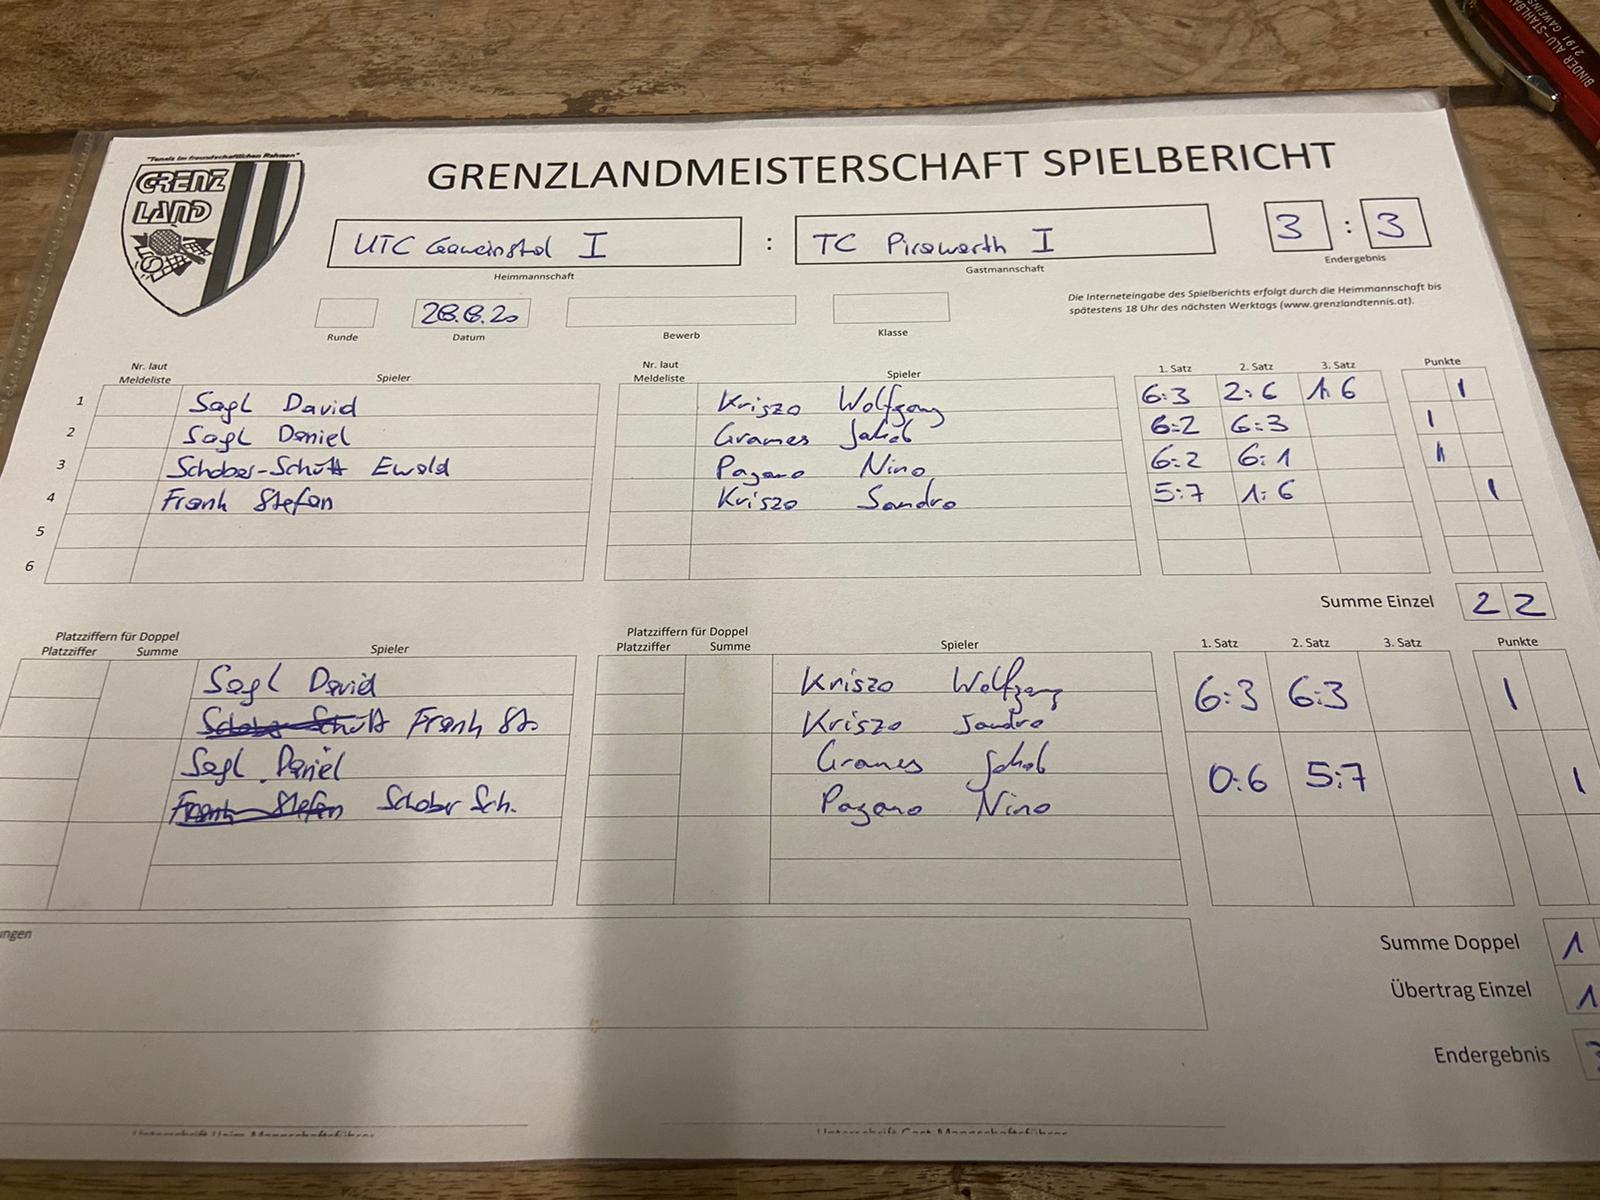 BINDER ALU-STAHLBA
2191 GAWEINS
"Tennis im freundschaftlichen Rahmen"
GRENZ
LAND
GRENZLANDMEISTERSCHAFT SPIELBERICHT
UTC Gaweinstal I : TC Pirawarth I 3 : 3
Heimmannschaft Gastmannschaft Endergebnis
Die Interneteingabe des Spielberichts erfolgt durch die Heimmannschaft bis
spätestens 18 Uhr des nächsten Werktags (www.grenzlandtennis.at).
28.8.20
Runde Datum Bewerb Klasse
Nr. laut Meldeliste Spieler Nr. laut Meldeliste Spieler 1. Satz 2. Satz 3. Satz Punkte
1 Sagl David Kriszo Wolfgang 6:3 2:6 1:6 1
2 Sagl Daniel Grames Jakob 6:2 6:3 1
3 Schober-Schütt Ewald Pagano Nino 6:2 6:1 1
4 Frank Stefan Kriszo Sandro 5:7 1:6 1
5
6
Summe Einzel 2 2
Platzziffern für Doppel Platzziffern für Doppel
Platzziffer Summe Spieler Platzziffer Summe Spieler 1. Satz 2. Satz 3. Satz Punkte
Sagl David Kriszo Wolfgang 6:3 6:3 1
Schober-Schütt Frank St. Kriszo Sandro
Sagl Daniel Grames Jakob 0:6 5:7 1
Frank Stefan Schober Sch. Pagano Nino
ungen
Summe Doppel 1
Übertrag Einzel 1
Endergebnis